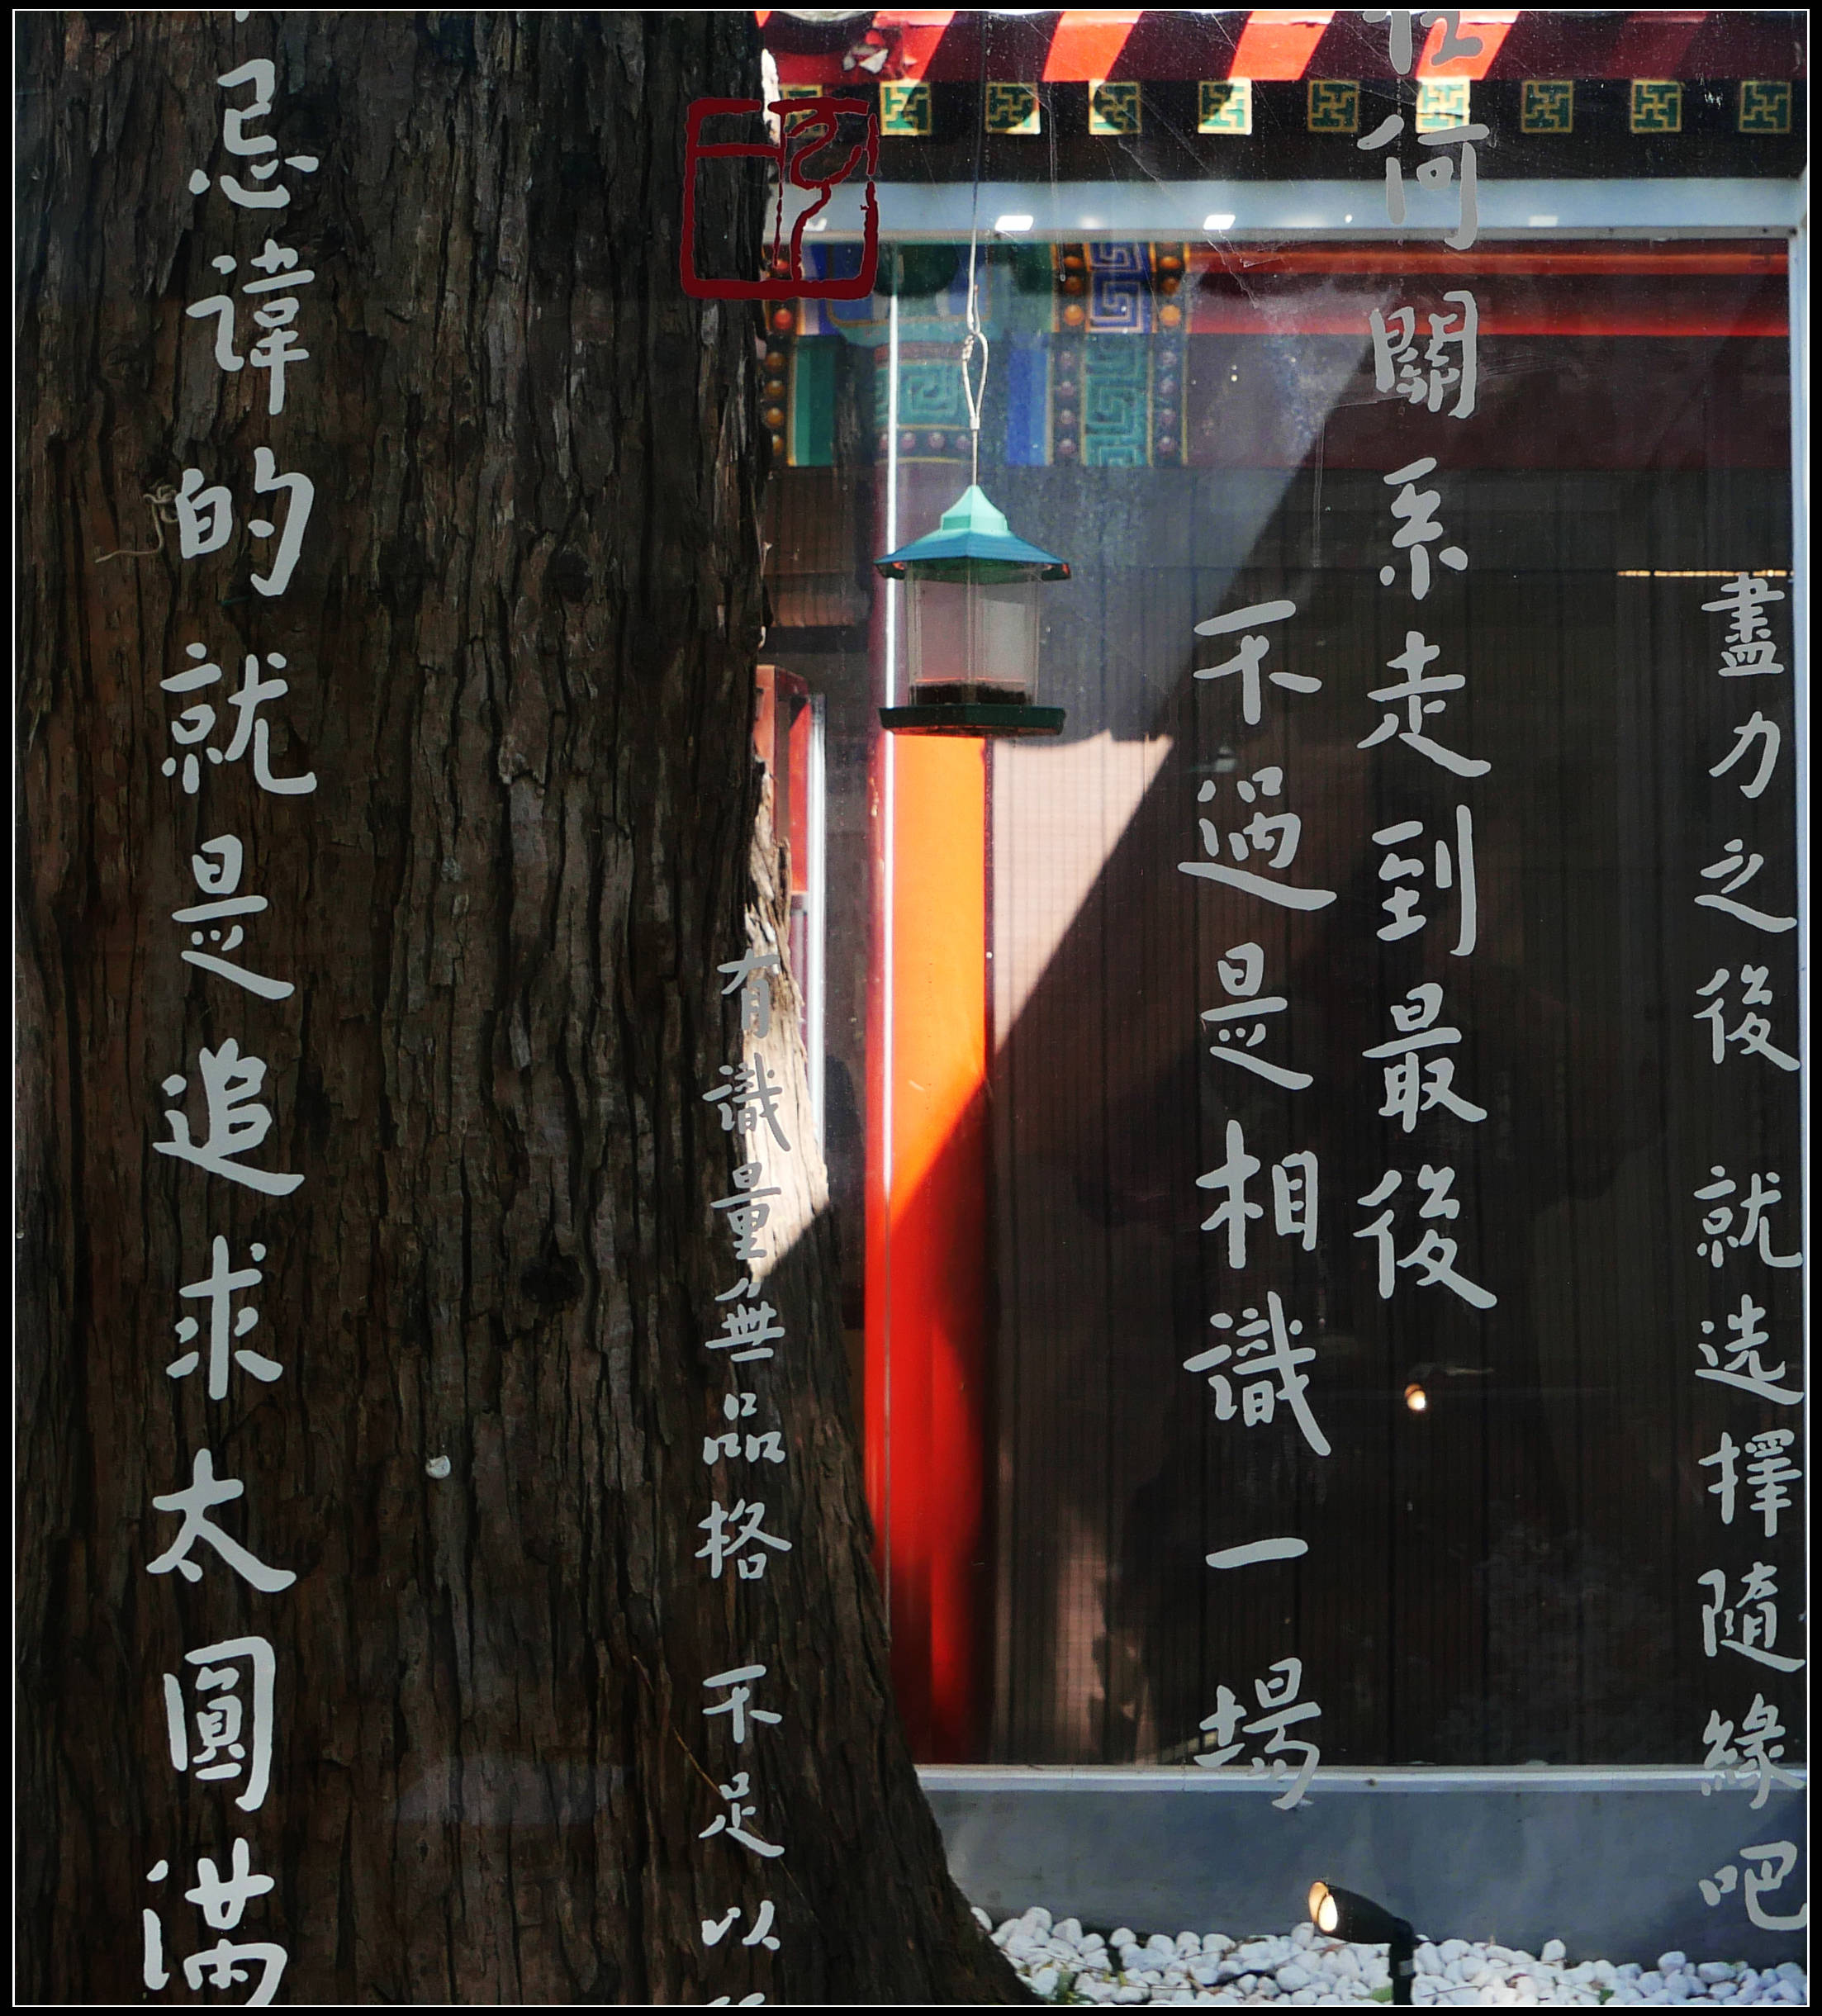 盡力之後 就选擇隨緣吧
任何關系走到最後
不過是相識一場
有識量無品格 不足以
忌諱的就是追求太圓满